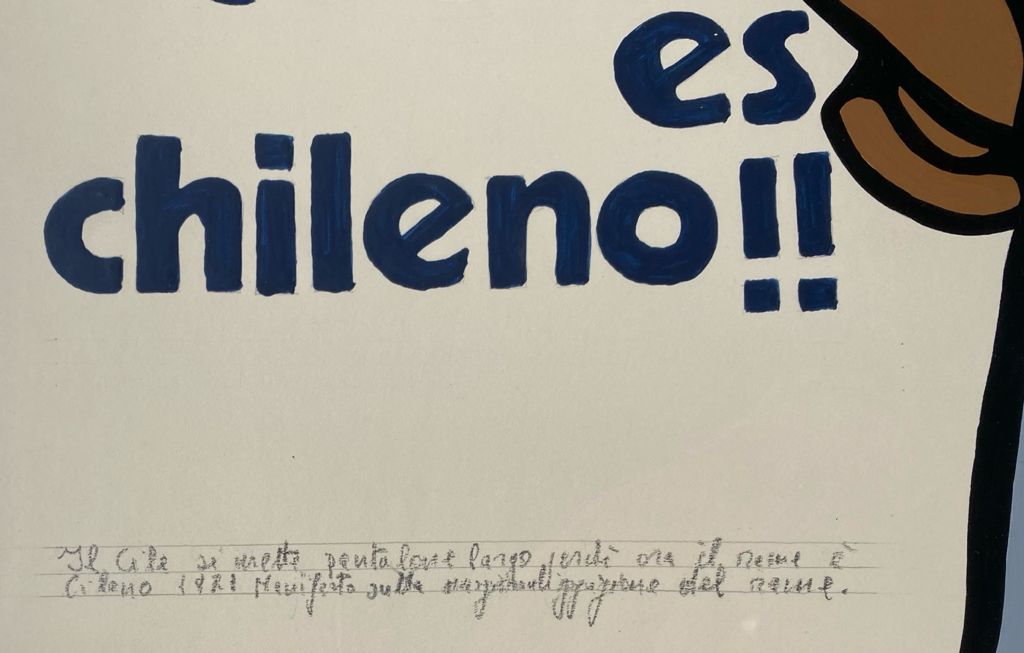 es
chileno!!
Il Cile si mette pantalone largo perché ora il rame è
Cileno 1971 Manifesto sulla nazionalizzazione del rame.